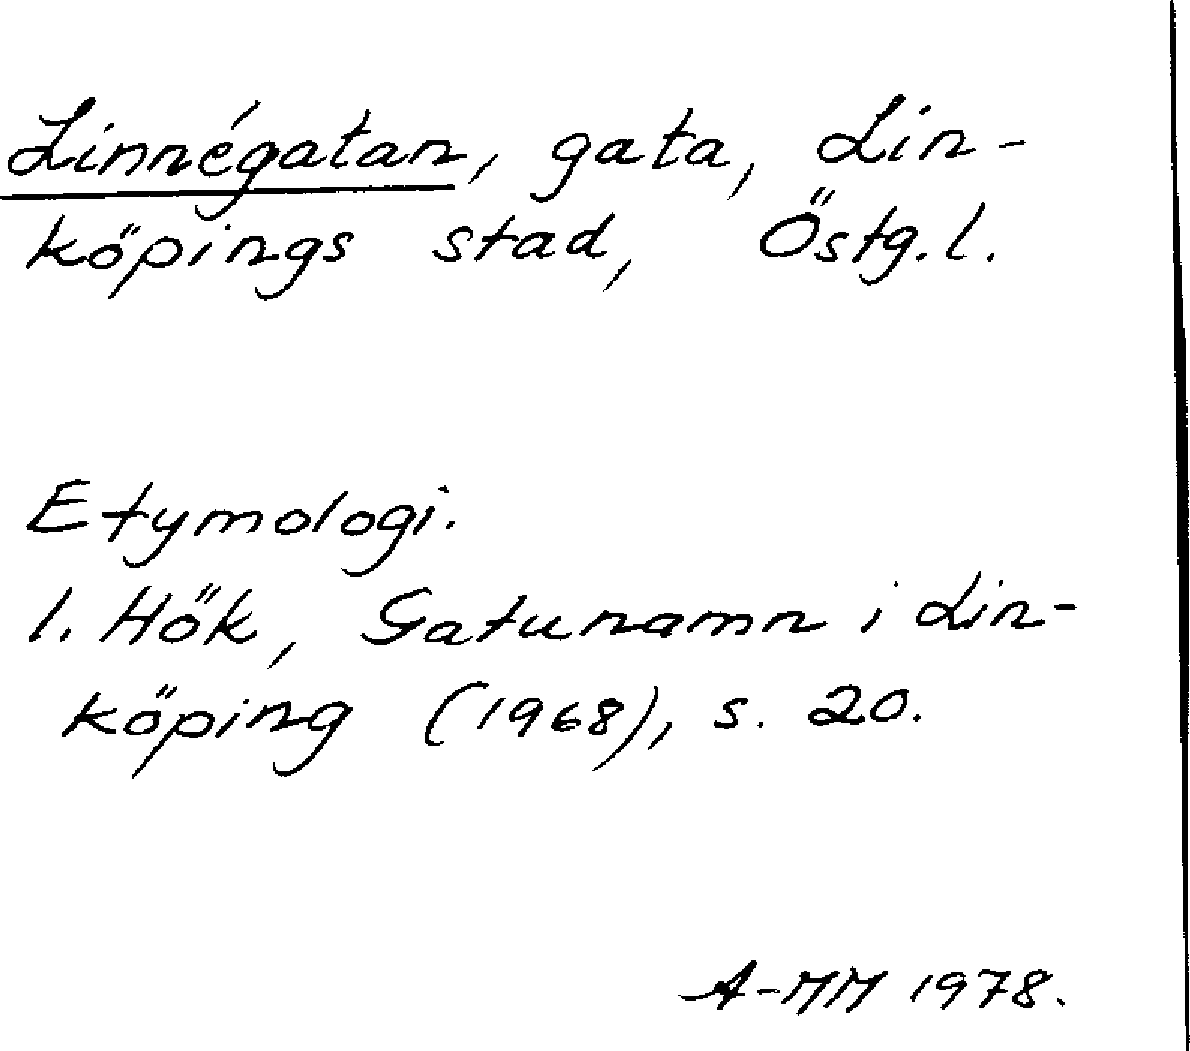 Linnégatan, gata, Lin-
köpings stad, Östg.l.
Etymologi.
I. Hök, Gatunamn i Lin-
köping (1968), s. 20.
A-MM 1978.